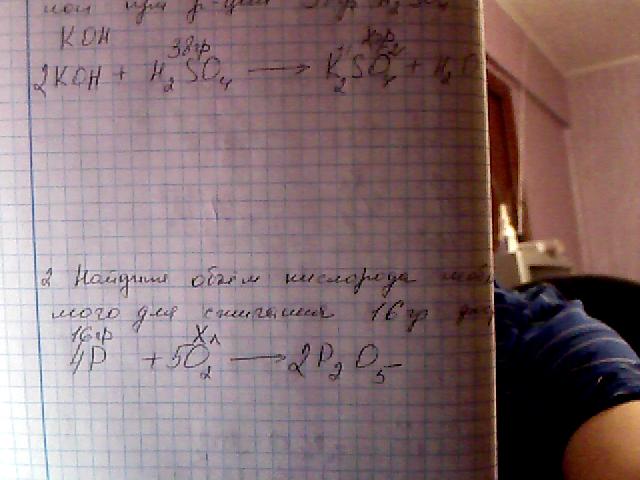 KOH
38гр Xгр
2KOH + H₂SO₄ ⟶ K₂SO₄ + H₂O
2 Найдите объём кислорода
мого для сжигания 16гр
16гр Xл
4P + 5O₂ ⟶ 2P₂O₅